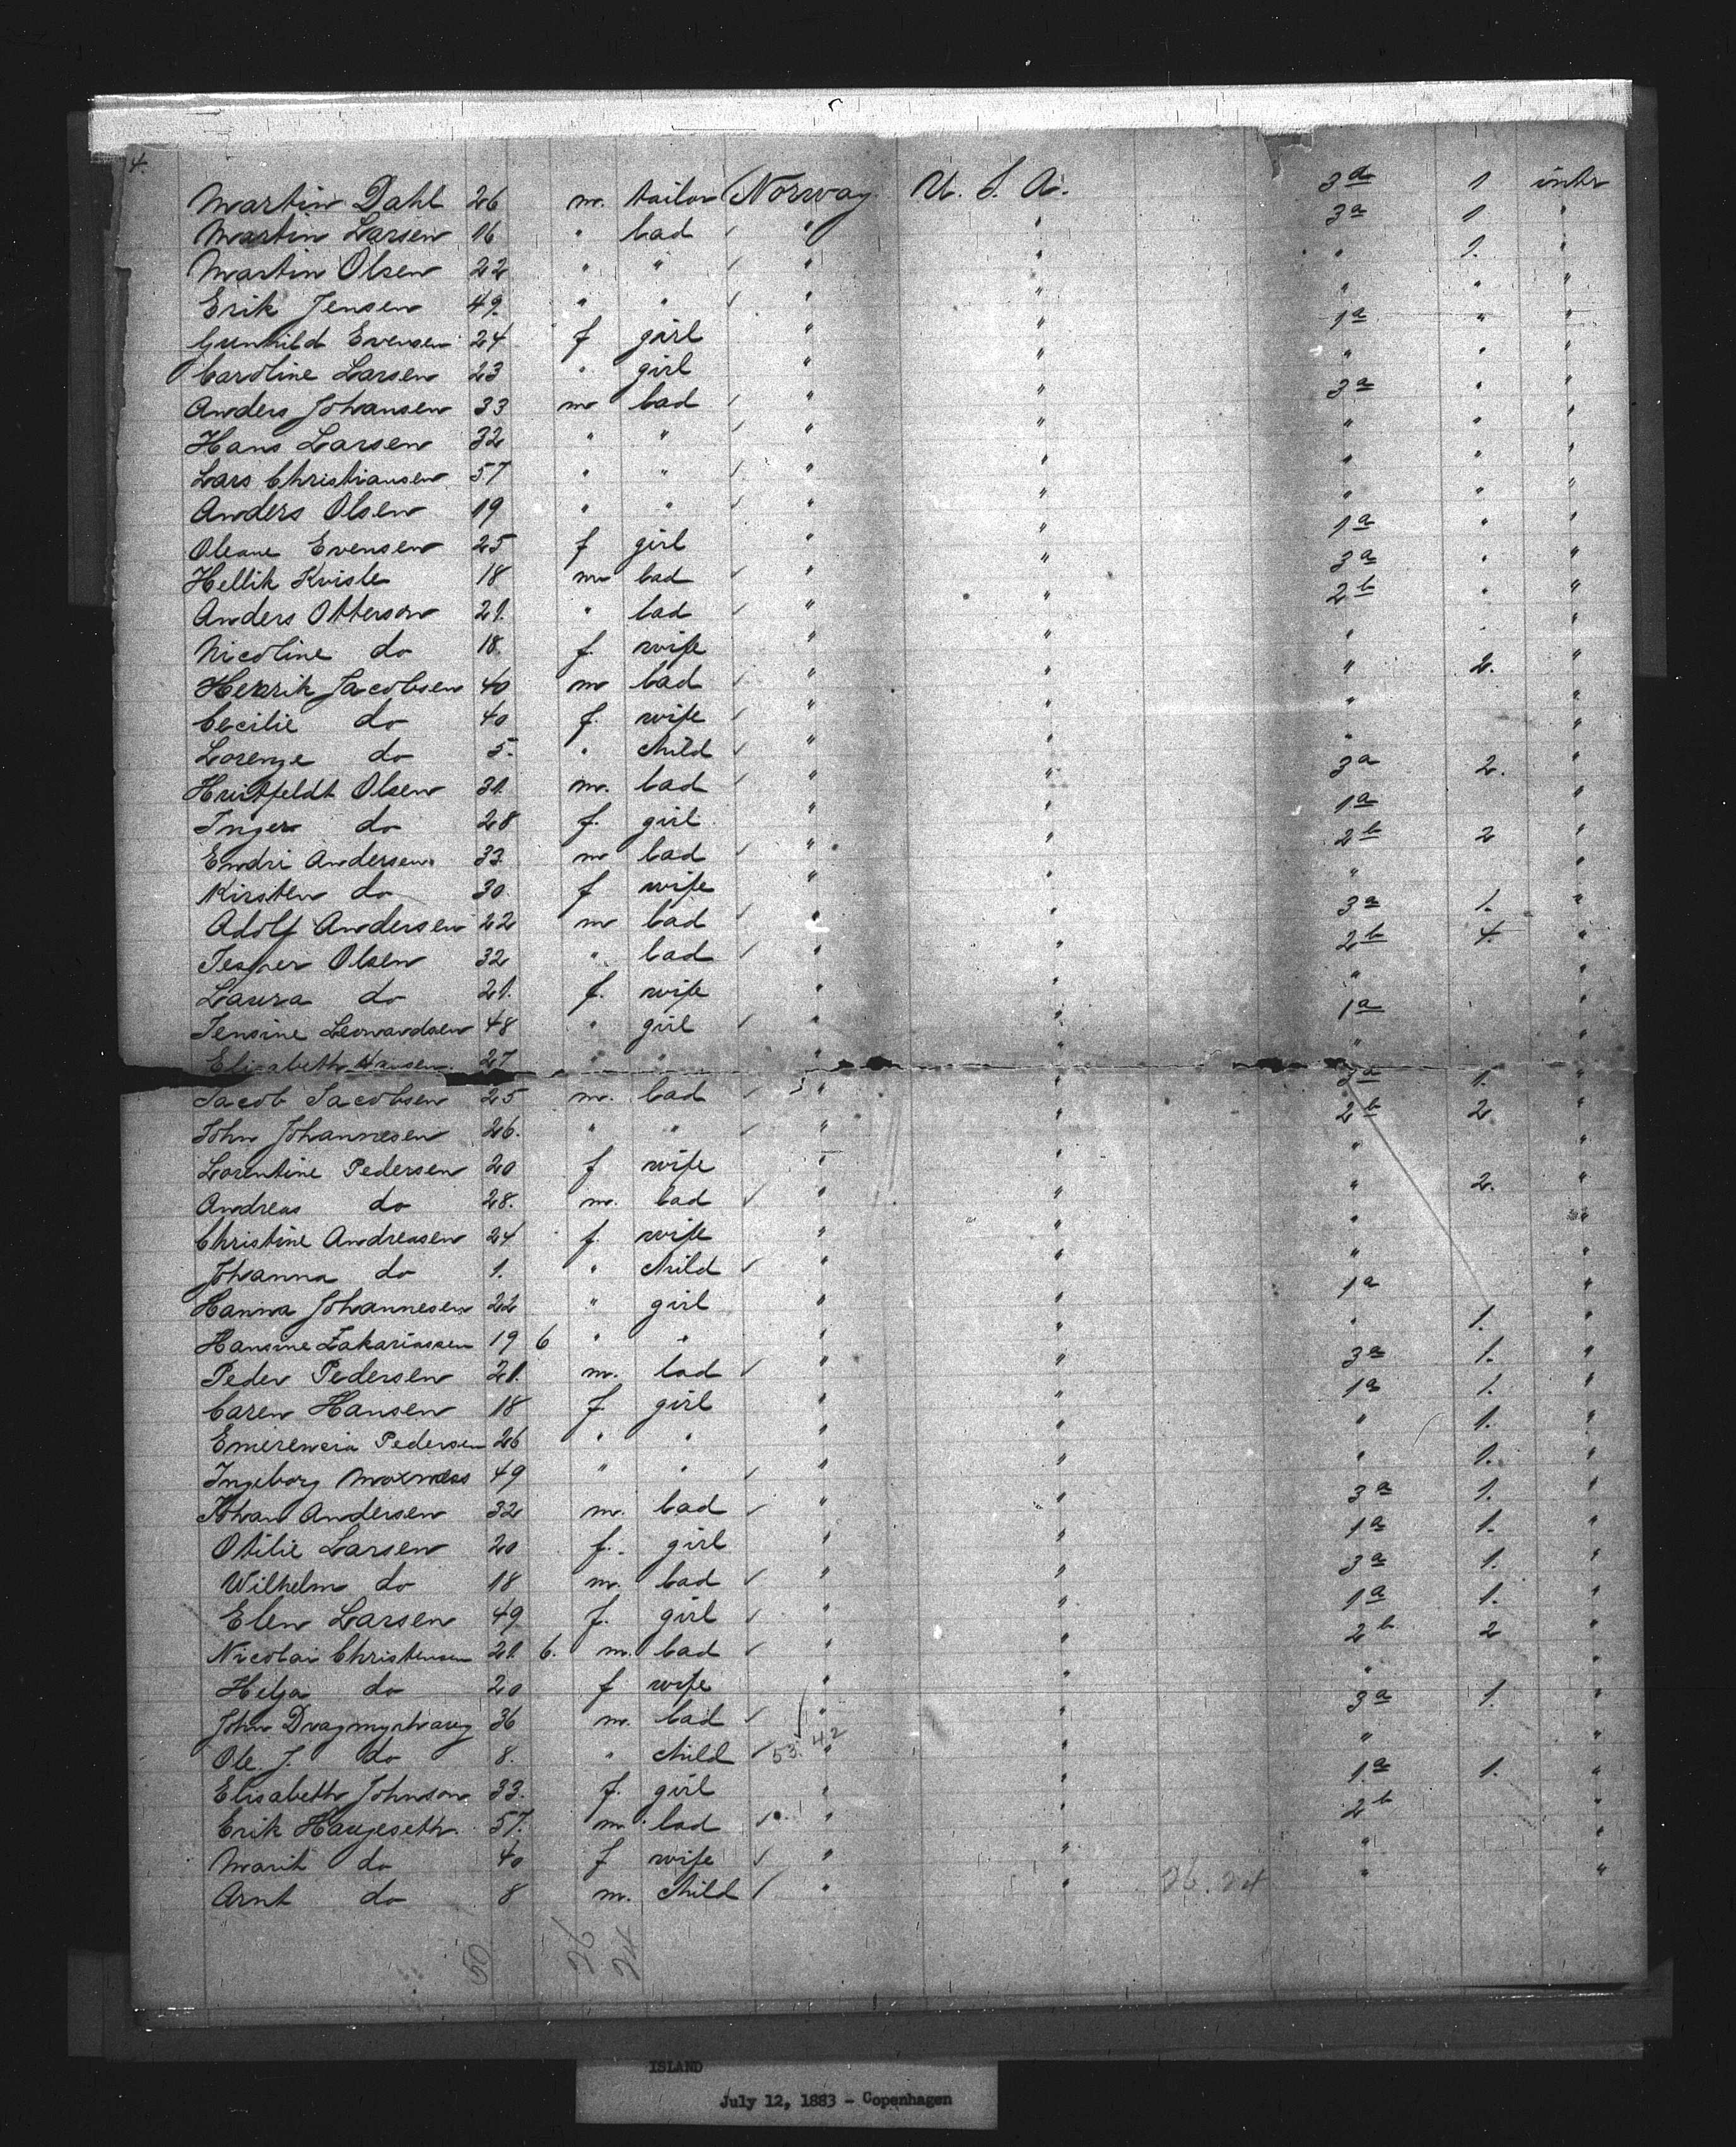 4.
Martin Dahl 26 m. tailor Norway U. S. A. 3a 1 intr
Martin Larsen 16 " lad " " 3a 1. "
Martin Olsen 22 " " " " " 1. "
Erik Jensen 49. " " " " " " "
Gunhild Evensen 24 f girl " " 1a " "
Caroline Larsen 23 " girl " " " " "
Anders Johansen 33 m lad " " 3a " "
Hans Larsen 32 " " " " " " "
Lars Christiansen 57 " " " " " " "
Anders Olsen 19 " " " " " " "
Oleane Evensen 25 f girl " " 1a " "
Hellik Kvisle 18 m lad " " 3a " "
Anders Otterson 21. " lad " " 2b " "
Nicoline do 18 f. wife " " " "
Henrik Jacobsen 40 m lad " " " 2. "
Cecilie do 40 f. wife " " " "
Lorenze do 5. " child " " " "
Huitfeldt Olsen 31. m. lad " " 3a 2. "
Inger do 28 f. girl " " 1a "
Endri Andersen 33. m lad " " 2b 2 "
Kirsten do 30. f wife " " " "
Adolf Andersen 22 m lad " " 3a 1. "
Jesper Olsen 32 " lad " " 2b 4. "
Laura do 21. f. wife " " " "
Jensine Leonardsen 48 " girl " " 1a "
Elisabeth Hansen 27 " " " " " "
Jacob Jacobsen 25 m. lad " " 3a 1. "
John Johannesen 26. " " " " 2b 2 "
Lorentine Pedersen 20 f wife " " " "
Andreas do 28. m. lad " " " 2. "
Christine Andreasen 24 f. wife " " " "
Johanna do 1. " child " " " "
Hanna Johannesen 22 " girl " " 1a "
Hansine Zakariassen 19 6 " " " " " 1. "
Peder Pedersen 21. m. lad " " 3a 1. "
Caren Hansen 18 f girl " " 1a 1. "
Emerencia Pedersen 26 " " " " " 1. "
Ingeborg 49 " " " " " 1. "
Johan Andersen 32 m. lad " " 3a 1. "
Otilie Larsen 20 f. girl " " 1a 1. "
Wilhelm do 18 m. lad " " 3a 1. "
Elen Larsen 49 f. girl " " 1a 1. "
Nicolai Christensen 21. 6. m. lad " " 2b 2 "
Helga do 20 f wife " " " "
John 36 m. lad " " 3a 1. "
Ole J. do 8. " child 53. 42 " " " "
Elisabeth Johnson 33. f. girl " " 1a 1. "
Erik Haugeseth. 57. m. lad " " 2b "
Marit do 40 f wife " " " "
Arnt do 8 m. child " " 26. 24 " "
50 26 24
ISLAND
July 12, 1883 - Copenhagen